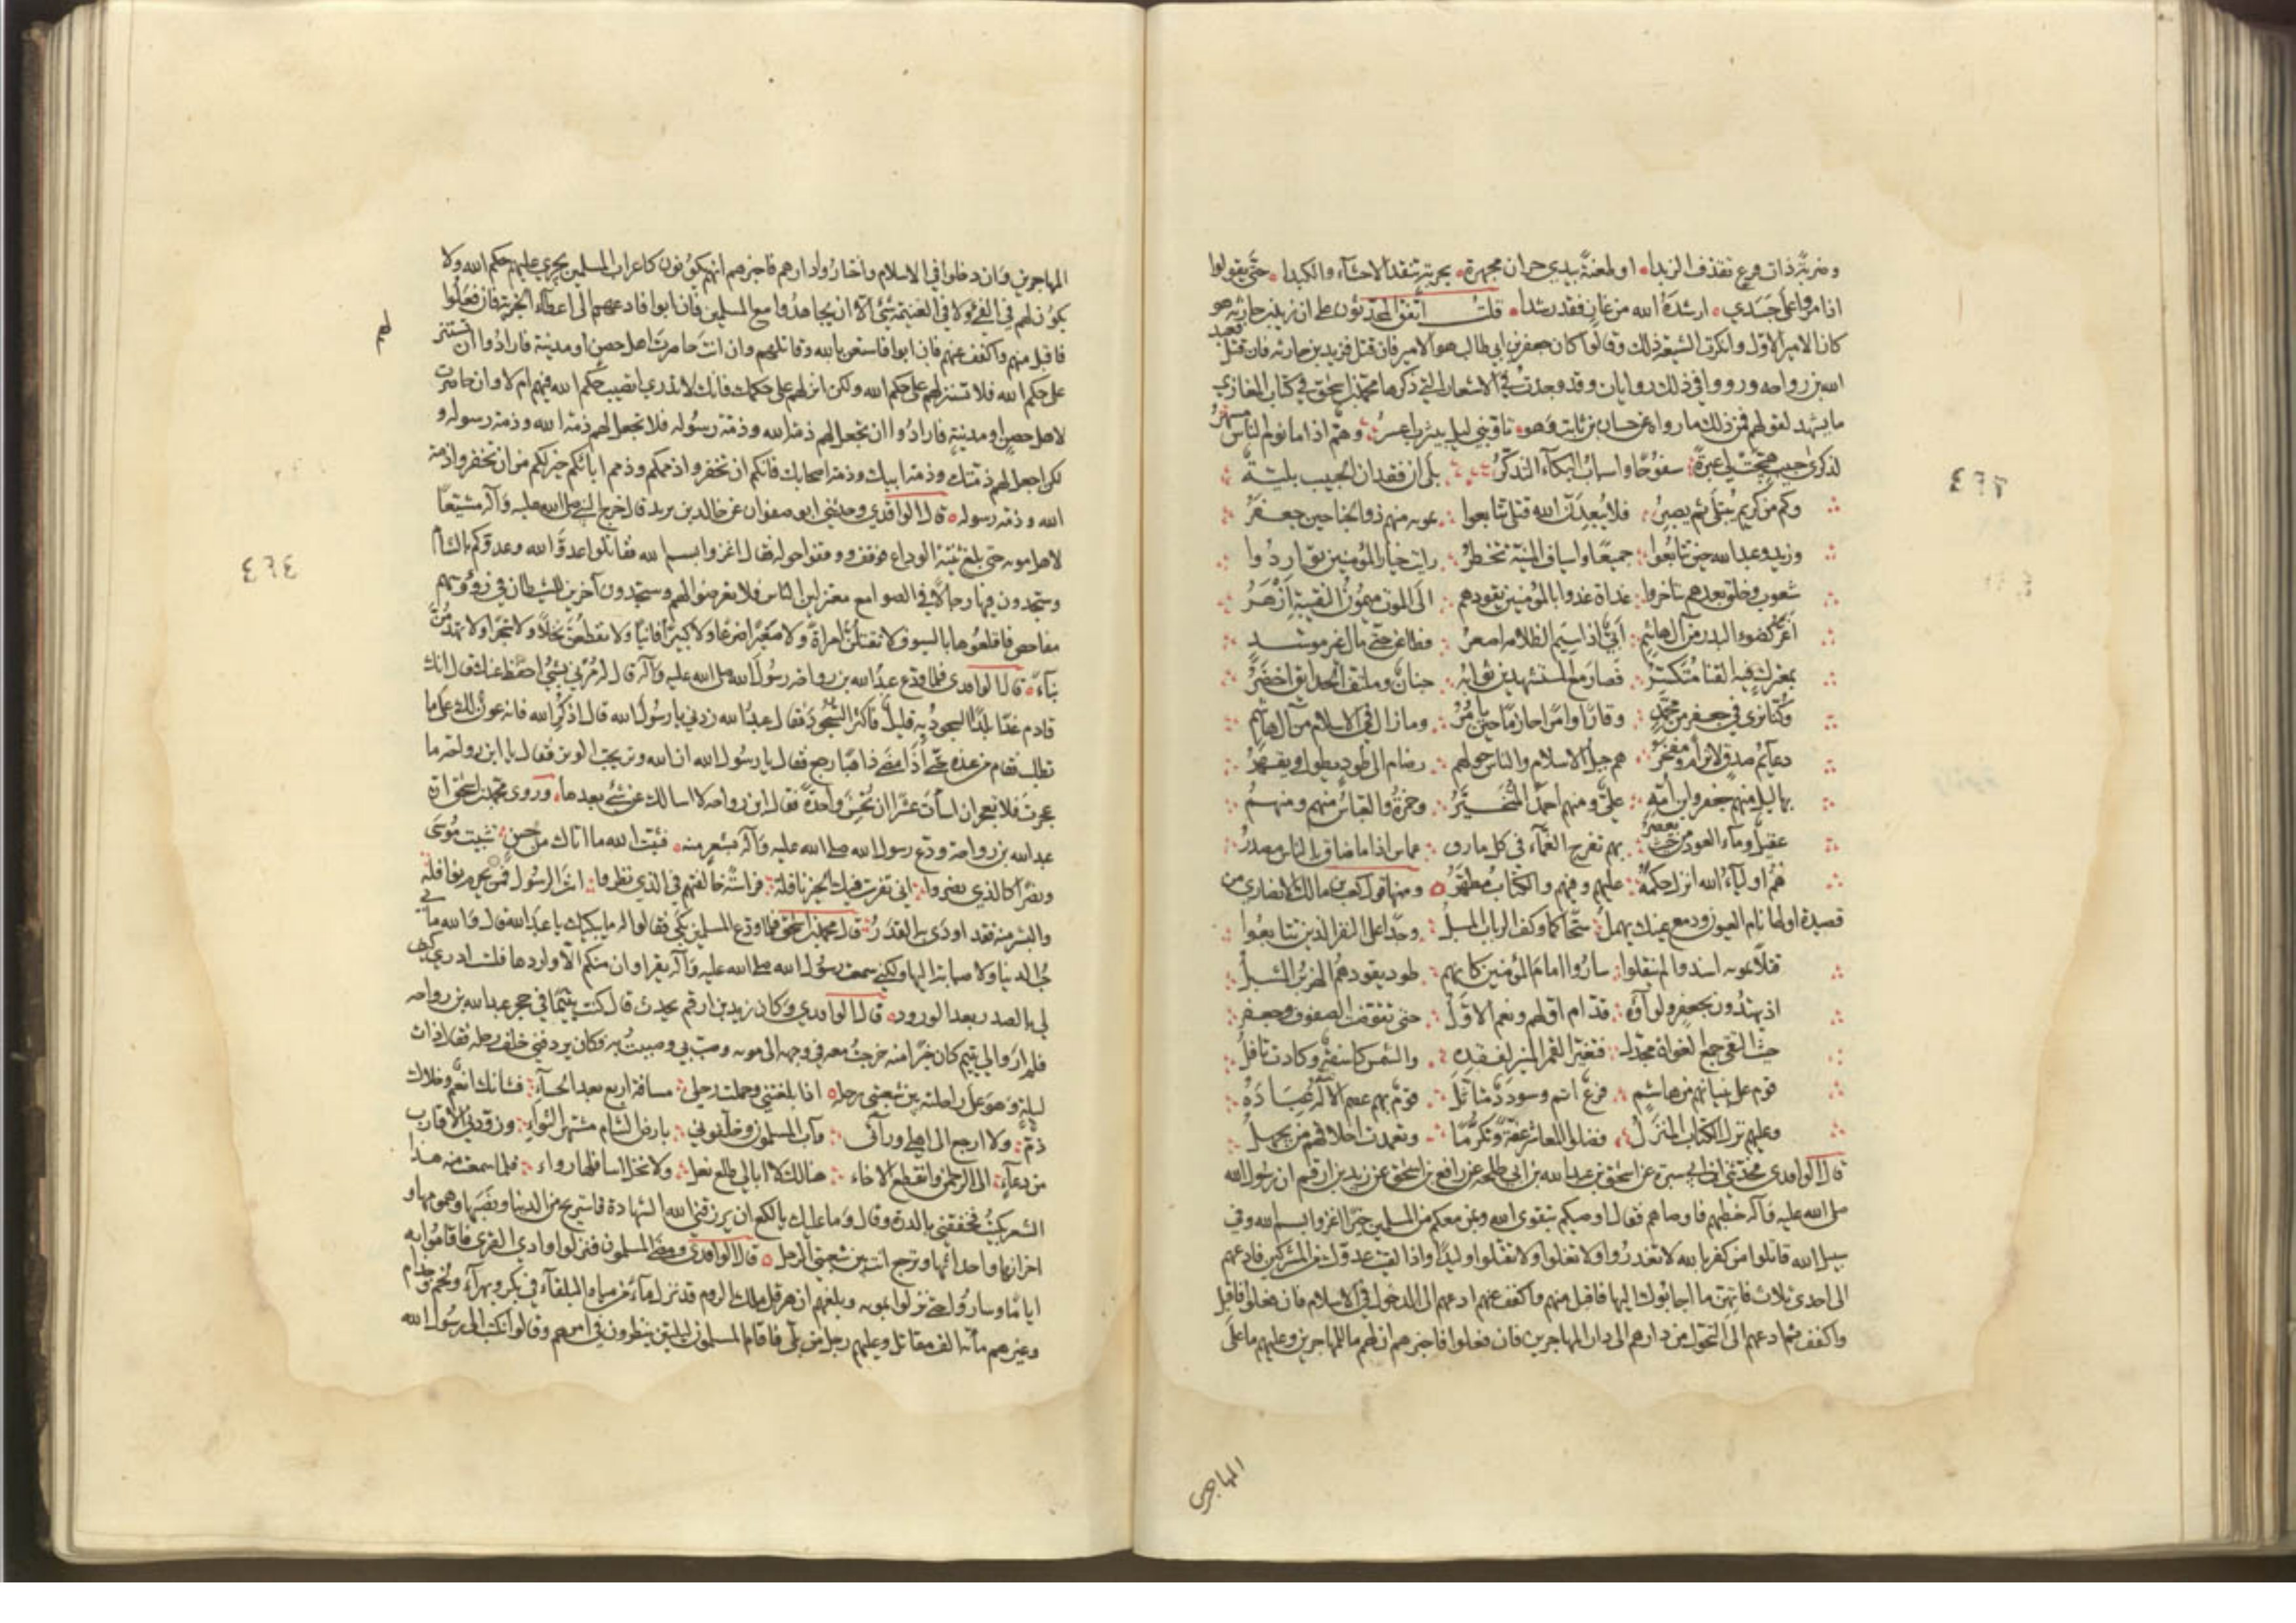 وضربة ذات فرع تقذف الزبدا او طعنة بيدي حران مجهزة بحربة تنفذ الاحشاء والكبدا حتى يقولوا
اذا مروا على جدثي ارشده الله من غاز فقد رشدا قلت اتفق المحدثون على ان زيد بن حارثة هو
كان الامير الاول وانكرت الشيعة ذلك وقالوا كان جعفر بن ابي طالب هو الامير فان قتل فزيد بن حارثة فان قتل فعبد
الله بن رواحة ورووا في ذلك روايات وقد وجدت في الاشعار التي ذكرها محمد بن اسحق في كتاب المغازي
ما يشهد لقولهم فمن ذلك ما رواه عن حسان بن ثابت وهو تأوبني ليل بيثرب اعسر وهم اذا ما نوم الناس مسهر
لذكرى حبيب هيجت لي عبرة سفوحا واسباب البكاء التذكر بلى ان فقدان الحبيب بلية
وكم من كريم يبتلى ثم يصبر فلا يبعدن الله قتلى تتابعوا بموتة منهم ذو الجناحين جعفر
وزيد وعبد الله حين تتابعوا جميعا واسياف المنية تخطر رايت خيار المؤمنين تواردوا
شعوب وخلق بعدهم يتأخر غداة غدوا بالمؤمنين يقودهم الى الموت ميمون النقيبة ازهر
اغر كضوء البدر من آل هاشم ابي اذا سيم الظلامة اصعر فطاعن حتى مال غير موسد
بمعترك فيه القنا متكسر فصار مع المستشهدين ثوابه جنان وملتف الحدايق اخضر
وكنا نرى في جعفر من محمد وقارا وامرا حازما حين يأمر وما زال في الاسلام من آل هاشم
دعايم صدق لا ترام ومفخر هم جبل الاسلام والناس حولهم رضام الى طود يطول ويقهر
بهاليل منهم جعفر وابن امه علي ومنهم احمد المتخير وحمزة والعباس منهم ومنهم
عقيل وماء العود من حيث يعصر بهم تفرج الغماء في كل مازق عماس اذا ما ضاق بالناس مصدر
هم اولياء الله انزل حكمه عليهم وفيهم والكتاب مطهر ومنها قول كعب بن مالك الانصاري من
قصيدة اولها نام العيون ودمع عينك يهمل سحا كما وكف الرباب المسبل وجدا على النفر الذين تتابعوا
قتلا بموتة اسندوا لم ينقلوا ساروا امام المؤمنين كانهم طود يقودهم الهزبر المشبل
اذ يهتدون بجعفر ولوآؤه قدام اولهم ونعم الاول حتى تفرقت الصفوف وجعفر
حيث التقى جمع الغواة مجدل فتغير القمر المنير لفقده والشمس كاسفة وكادت تافل
قوم على بنيانهم من هاشم فرع اشم وسودد متاثل قوم بهم عصم الاله عباده
وعليهم نزل الكتاب المنزل فضلوا المعاشر عفة وتكرما وتغمدت اخلاقهم من يجهل
قال الواقدي فحدثني ابن ابي سبرة عن اسحق بن عبد الله بن ابي طلحة عن رافع بن اسحق عن زيد بن ارقم ان رسول الله
صلى الله عليه وآله خطبهم فاوصاهم فقال اوصيكم بتقوى الله وبمن معكم من المسلمين خيرا اغزوا بسم الله وفي
سبيل الله قاتلوا من كفر بالله لا تغدروا ولا تغلوا ولا تقتلوا وليدا واذا لقيت عدوك من المشركين فادعهم
الى احدى ثلاث فايتهن ما اجابوك اليها فاقبل منهم واكفف عنهم ادعهم الى الدخول في الاسلام فان فعلوا فاقبل
واكفف ثم ادعهم الى التحول من دارهم الى دار المهاجرين فان فعلوا فاخبرهم ان لهم ما للمهاجرين وعليهم ما على
المهاجرين
٤٢٣
المهاجرين وان دخلوا في الاسلام واختاروا دارهم فاخبرهم انهم يكونون كاعراب المسلمين يجري عليهم حكم الله ولا
يكون لهم في الفئ ولا في الغنيمة شئ الا ان يجاهدوا مع المسلمين فان ابوا فادعهم الى اعطاء الجزية فان فعلوا
فاقبل منهم واكفف عنهم فان ابوا فاستعن بالله وقاتلهم وان انت حاصرت اهل حصن او مدينة فارادوا ان تستنزلهم
على حكم الله فلا تستنزلهم على حكم الله ولكن انزلهم على حكمك فانك لا تدري اتصيب حكم الله فيهم ام لا وان حاصرت
لاهل حصن او مدينة فارادوا ان تجعل لهم ذمة الله وذمة رسوله فلا تجعل لهم ذمة الله وذمة رسوله و
لكن اجعل لهم ذمتك وذمة ابيك وذمة اصحابك فانكم ان تخفروا ذممكم وذمم ابائكم خير لكم من ان تخفروا ذمة
الله وذمة رسوله قال الواقدي وحدثني ابو صفوان عن خالد بن يزيد قال خرج النبي صلى الله عليه وآله مشيعا
لاهل موتة حتى بلغ ثنية الوداع فوقف ووقفوا حوله فقال اغزوا بسم الله فقاتلوا عدو الله وعدوكم بالشام
وستجدون فيها رجالا في الصوامع معتزلين الناس فلا تعرضوا لهم وستجدون آخرين للشيطان في رؤوسهم
مفاحص فاقلعوها بالسيوف لا تقتلن امراة ولا صغيرا ضرعا ولا كبيرا فانيا ولا تقطعن نخلا ولا شجرا ولا تهدمن
بناء قال الواقدي فلما ودع عبد الله بن رواحة رسول الله صلى الله عليه وآله قال له مرني بشئ احفظه عنك قال انك
قادم غدا بلدا السجود به قليل فاكثر السجود فقال عبد الله زدني يا رسول الله قال اذكر الله فانه عون لك على ما
تطلب فقام من عنده حتى اذا مضى ذاهبا رجع فقال يا رسول الله ان الله وتر يحب الوتر فقال يا ابن رواحة ما
عجزت فلا تعجز ان اسأت عشرا ان تحسن واحدة فقال ابن رواحة لا اسالك عن شئ بعدها وروى محمد بن اسحق ان
عبد الله بن رواحة ودع رسول الله صلى الله عليه وآله بشعر منه فثبت الله ما اتاك من حسن تثبيت موسى
ونصرا كالذي نصروا اني تفرست فيك الخير نافلة فراسة خالفتهم في الذي نظروا انت الرسول فمن يحرم نوافله
والبشر منه فقد اودى به القدر قال محمد بن اسحق فلما ودع المسلمين بكى فقالوا له ما يبكيك يا عبد الله قال والله ما في
حب الدنيا ولا صبابة اليها ولكني سمعت رسول الله صلى الله عليه وآله يقرا وان منكم الا واردها فلست ادري كيف
لي بالصدر بعد الورود قال الواقدي وكان زيد بن ارقم يحدث قال كنت يتيما في حجر عبد الله بن رواحة
فلم ار والي يتيم كان خيرا منه خرجت معه في وجهه الى موتة وصب بي وصببت به فكان يردفني خلف رحله فقال ذات
ليلة وهو على راحلته بين شعبتي رحله اذا بلغتني وحملت رحلي مسافة اربع بعد الحساء فشانك انعم وخلاك
ذم ولا ارجع الى اهلي ورآئي وآب المسلمون وخلفوني بارض الشام مشتهر الثواء وزودني الاقارب
من دعاء الى الرحمن وانقطع الاخاء هنالك لا ابالي طلع نخل ولا نخل اسافلها رواء فلما سمعت منه هذا
الشعر بكيت فخفقني بالدرة وقال وما عليك يا لكع ان يرزقني الله الشهادة فاستريح من الدنيا ونصبها وهمومها و
احزانها واحداثها وترجع انت بين شعبتي الرحل قال الواقدي ومضى المسلمون فنزلوا وادي القرى فاقاموا به
اياما وساروا حتى نزلوا بموتة وبلغهم ان هرقل ملك الروم قد نزل ماء من مياه البلقاء في بكر وبهراء ولخم وجذام
وغيرهم مأئة الف مقاتل وعليهم رجل من بلي فاقام المسلمون ليلتين ينظرون في امرهم وقالوا نكتب الى رسول الله
٤٢٤